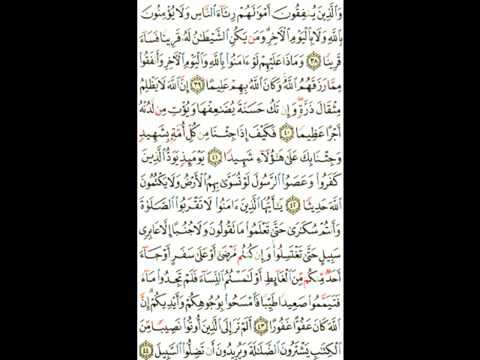 وَالَّذِينَ يُنفِقُونَ أَمْوَٰلَهُمْ رِئَآءَ النَّاسِ وَلَا يُؤْمِنُونَ
بِاللَّهِ وَلَا بِالْيَوْمِ الْءَاخِرِ وَمَن يَكُنِ الشَّيْطَٰنُ لَهُۥ قَرِينًا فَسَآءَ
قَرِينًا ٣٨ وَمَاذَا عَلَيْهِمْ لَوْ ءَامَنُوا۟ بِاللَّهِ وَالْيَوْمِ الْءَاخِرِ وَأَنفَقُوا۟
مِمَّا رَزَقَهُمُ اللَّهُ وَكَانَ اللَّهُ بِهِمْ عَلِيمًا ٣٩ إِنَّ اللَّهَ لَا يَظْلِمُ
مِثْقَالَ ذَرَّةٍ وَإِن تَكُ حَسَنَةً يُضَٰعِفْهَا وَيُؤْتِ مِن لَّدُنْهُ
أَجْرًا عَظِيمًا ٤٠ فَكَيْفَ إِذَا جِئْنَا مِن كُلِّ أُمَّةٍۭ بِشَهِيدٍ
وَجِئْنَا بِكَ عَلَىٰ هَٰٓؤُلَآءِ شَهِيدًا ٤١ يَوْمَئِذٍ يَوَدُّ الَّذِينَ
كَفَرُوا۟ وَعَصَوُا۟ الرَّسُولَ لَوْ تُسَوَّىٰ بِهِمُ الْأَرْضُ وَلَا يَكْتُمُونَ
اللَّهَ حَدِيثًا ٤٢ يَٰٓأَيُّهَا الَّذِينَ ءَامَنُوا۟ لَا تَقْرَبُوا۟ الصَّلَوٰةَ
وَأَنتُمْ سُكَٰرَىٰ حَتَّىٰ تَعْلَمُوا۟ مَا تَقُولُونَ وَلَا جُنُبًا إِلَّا عَابِرِى
سَبِيلٍ حَتَّىٰ تَغْتَسِلُوا۟ وَإِن كُنتُم مَّرْضَىٰٓ أَوْ عَلَىٰ سَفَرٍ أَوْ جَآءَ
أَحَدٌ مِّنكُم مِّنَ الْغَآئِطِ أَوْ لَٰمَسْتُمُ النِّسَآءَ فَلَمْ تَجِدُوا۟ مَآءً
فَتَيَمَّمُوا۟ صَعِيدًا طَيِّبًا فَامْسَحُوا۟ بِوُجُوهِكُمْ وَأَيْدِيكُمْ إِنَّ
اللَّهَ كَانَ عَفُوًّا غَفُورًا ٤٣ أَلَمْ تَرَ إِلَى الَّذِينَ أُوتُوا۟ نَصِيبًا مِّنَ
الْكِتَٰبِ يَشْتَرُونَ الضَّلَٰلَةَ وَيُرِيدُونَ أَن تَضِلُّوا۟ السَّبِيلَ ٤٤